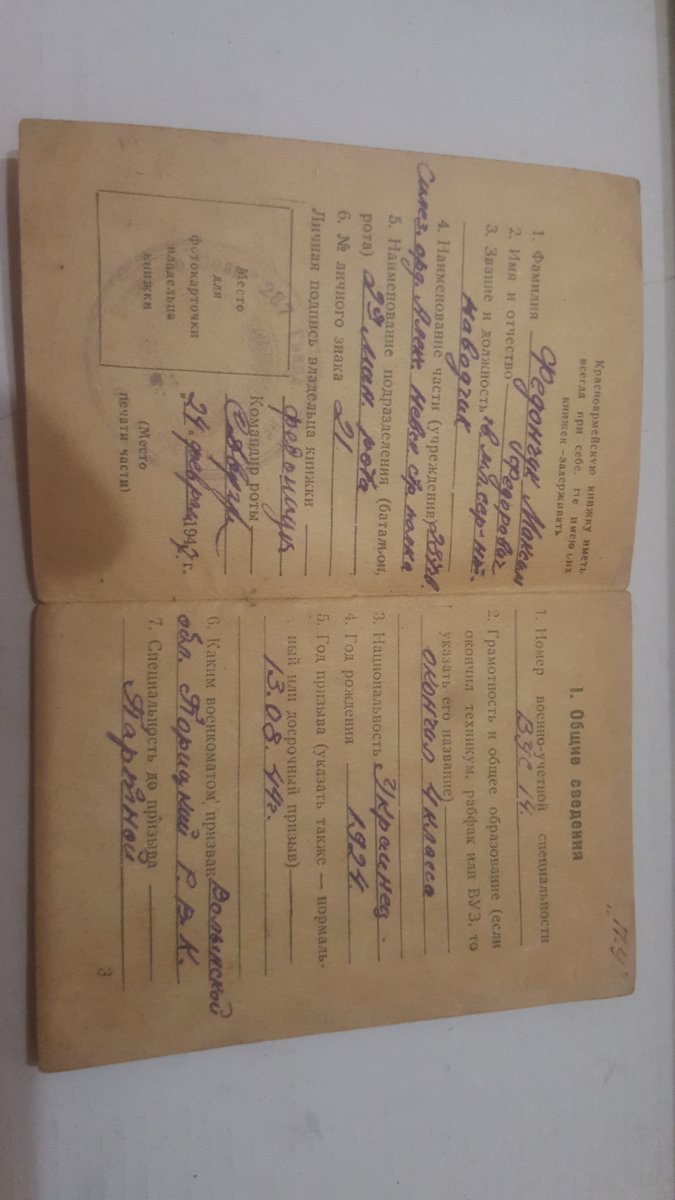 Красноармейскую книжку иметь
всегда при себе. Не имеющих
книжек—задерживать
1. Фамилия Федончук Максим
2. Имя и отчество Федорович
3. Звание и должность гв. мл. сер-нт.
Наводчик
4. Наименование части (учреждения)
Силез. орд. Алек. Невск. стр. полка
5. Наименование подразделения (батальон,
рота) 2я мин. рота
6. № личного знака 21
Личная подпись владельца книжки
Федончук
Место
для
фотокарточки
владельца
книжки
Командир роты
„24. февраля 194 г.
(Место
печати части)
„П.У“
I. Общие сведения
1. Номер военно-учетной специальности
ВУС 14.
2. Грамотность и общее образование (если
окончил техникум, рабфак или ВУЗ, то
указать его название)
окончил 4 класса
3. Национальность Украинец.
4. Год рождения 1924.
5. Год призыва (указать также — нормаль-
ный или досрочный призыв)
13.08.44г.
6. Каким военкоматом призван Волынской
обл. Порицкий Р.В.К.
7. Специальность до призыва
3